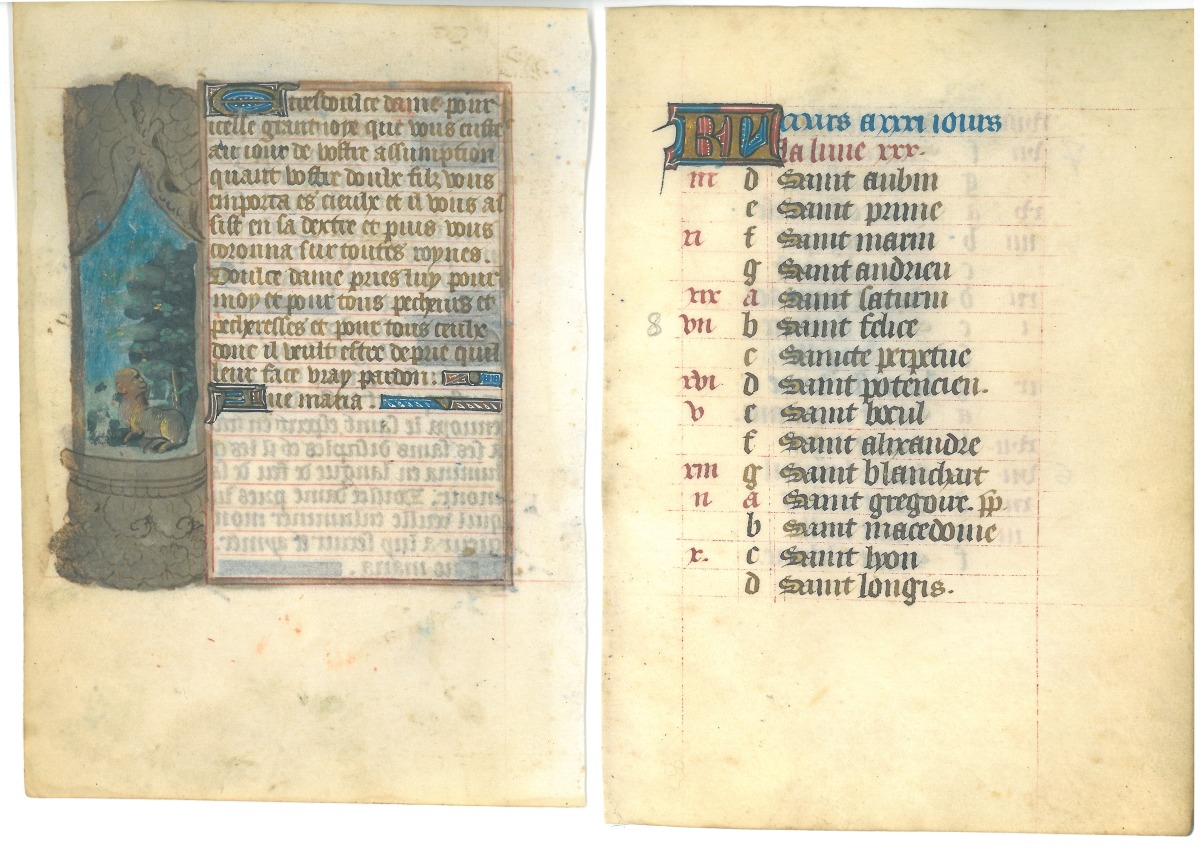 E tresdoulce dame pour
icelle grant ioye que vous eustes
au iour de vostre assumption
quant vostre doulx filz vous
emporta es cieulx et il vous as
sist en sa dextre et puis vous
coronna sur toutes roynes.
Doulce dame pries luy pour
moy et pour tous pecheurs et
pecheresses et pour tous ceulx
donc il veult estre deprie quil
leur face vray pardon:
Aue maria.
KL Mars a xxxi iours
la lune xxx.
iii d Saint aubin
e Saint prime
xi f Saint marin
g Saint andrieu
xix a Saint saturin
8 viii b Saint felice
c Saincte perpetue
xvi d Saint potencien.
v e Saint boeul
f Saint alixandre
xiii g Saint blanchart
ii a Saint gregoire. pp.
b Saint macedoine
x. c Saint lyon
d Saint longis.